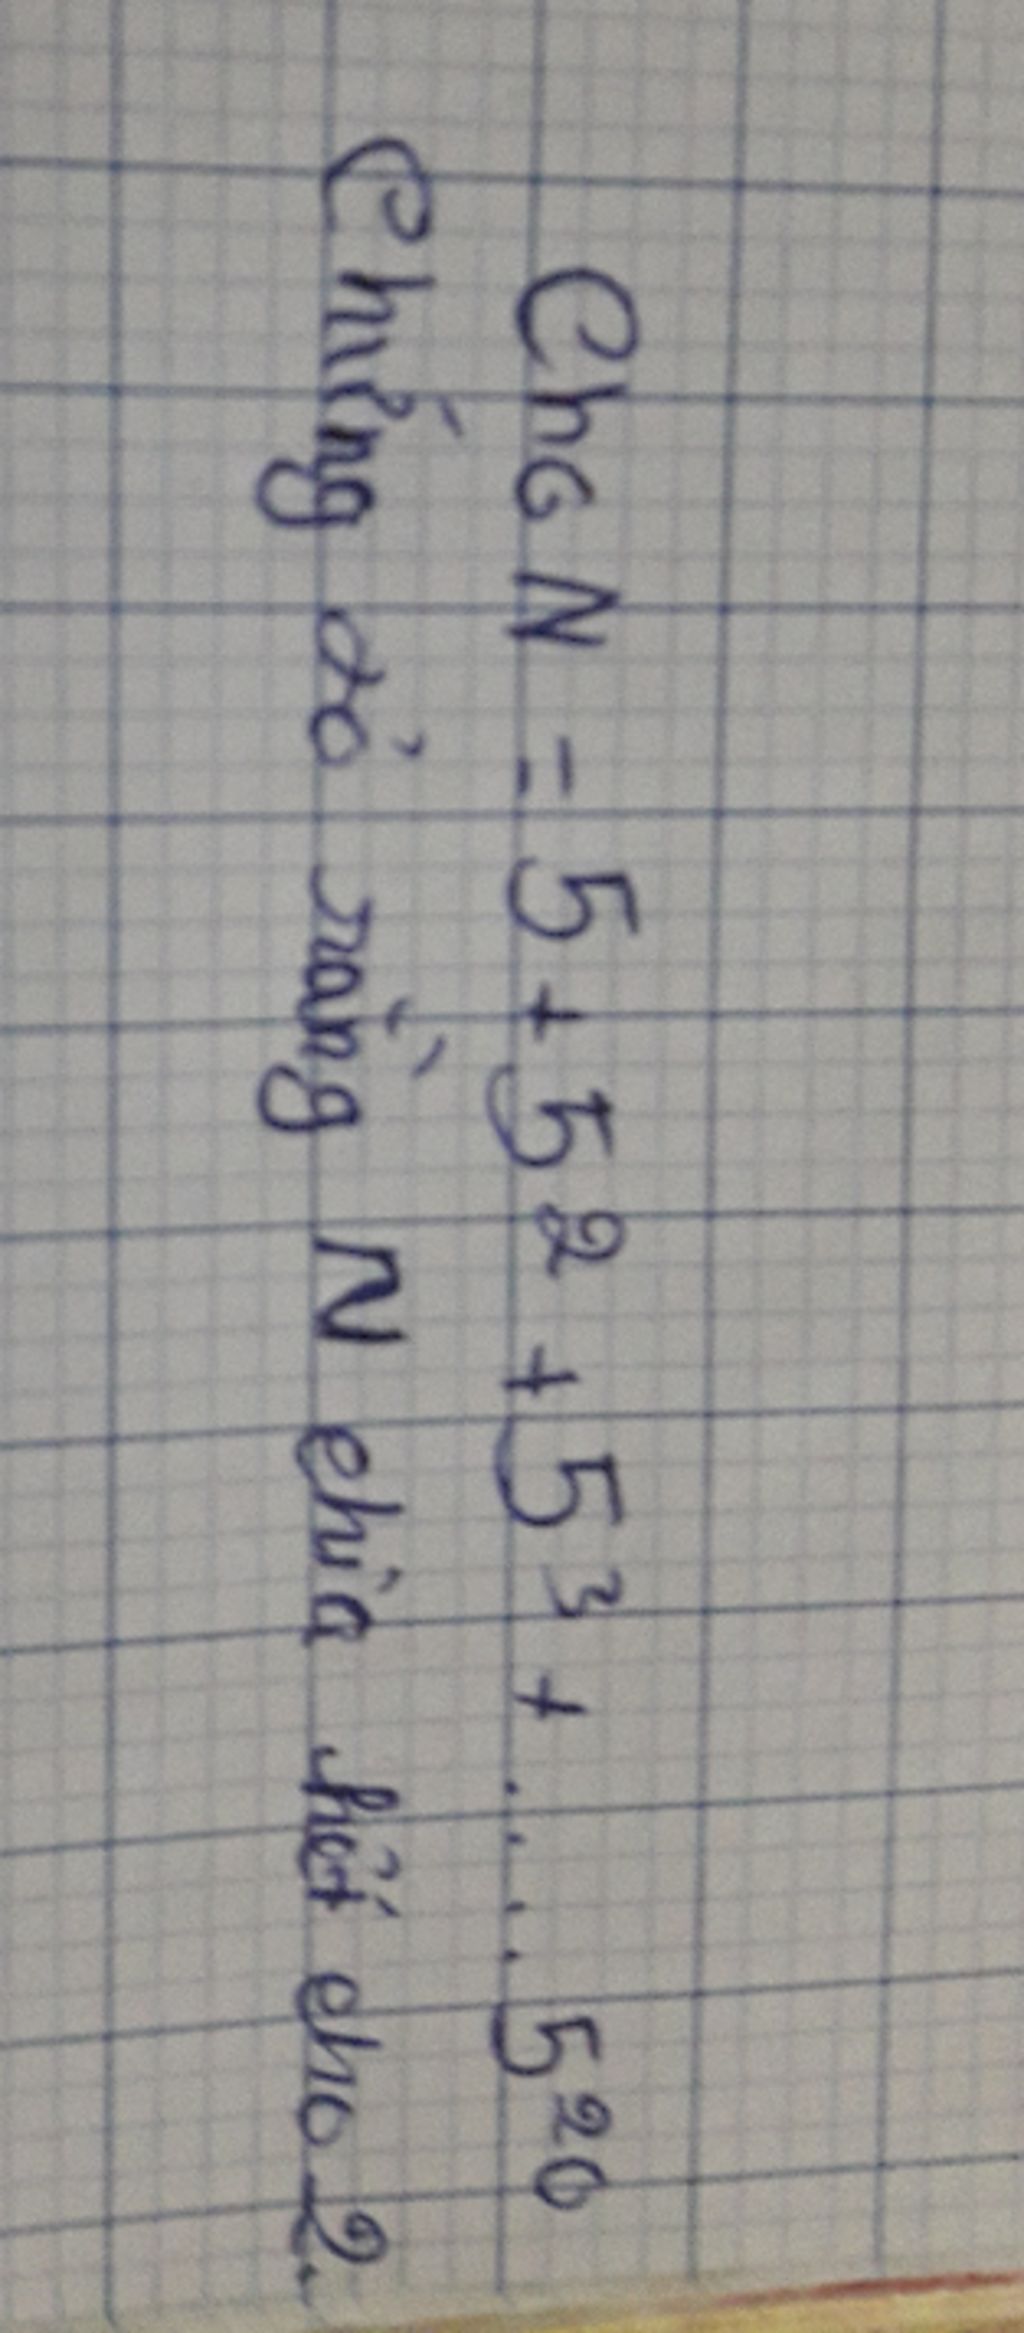 Cho N = 5 + 5² + 5³ + .... 5²⁰
Chứng tỏ rằng N chia hết cho 2.